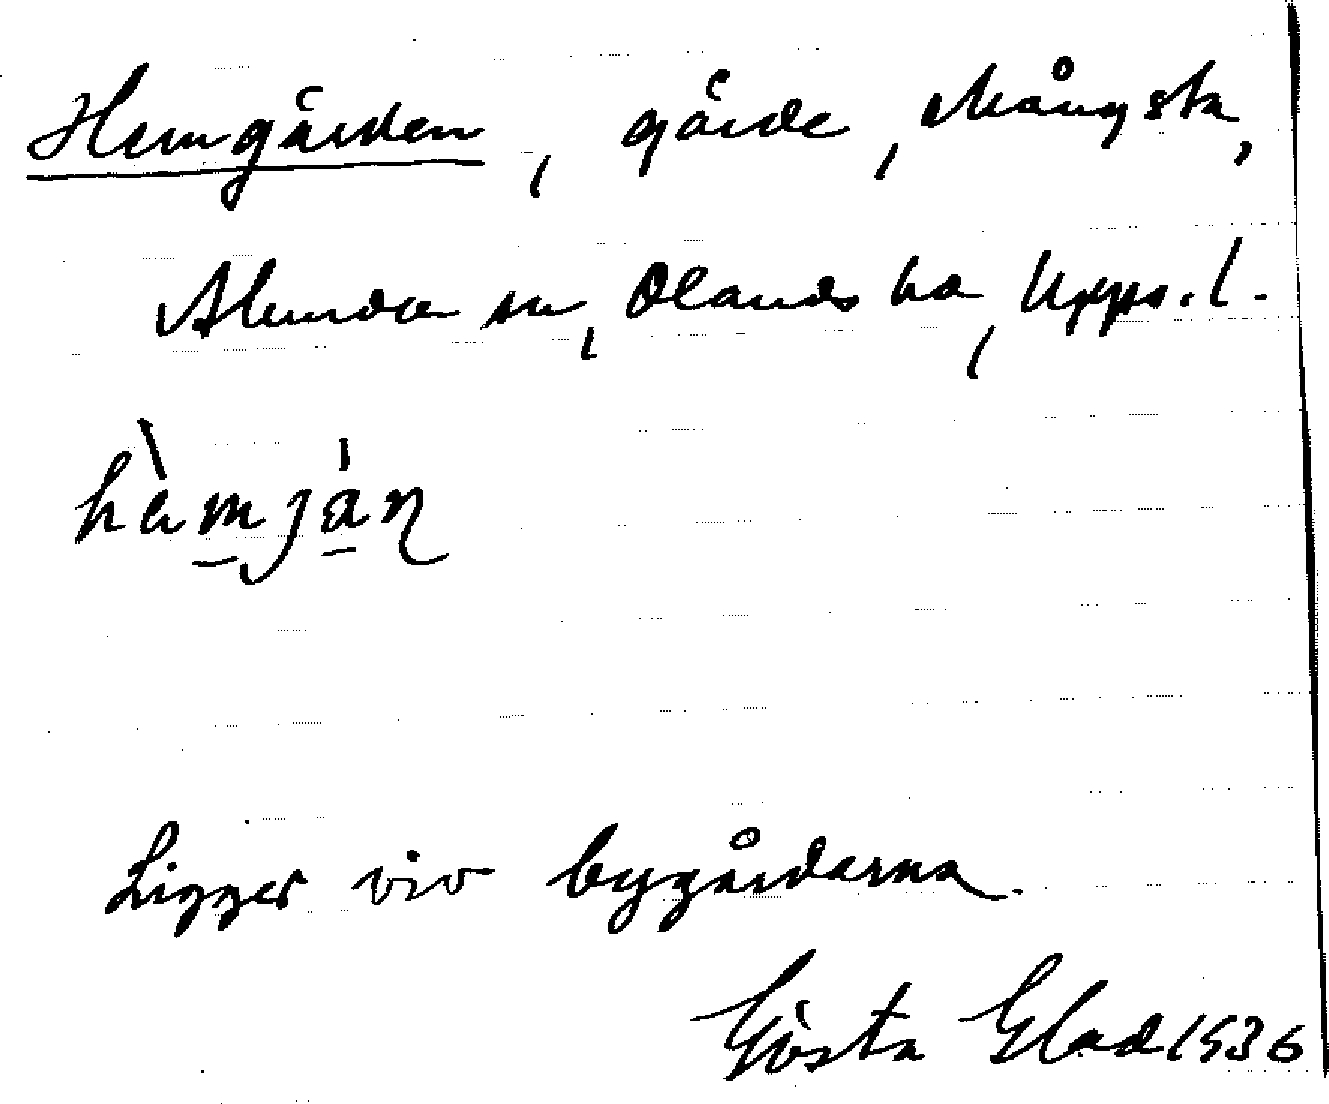 Hemgärden, gärde, Mångsta,
Alunda sn, Olands hd, Upps. l.
hèmjáɳ
Ligger vid bygårdarna.
Gösta Elad 1936